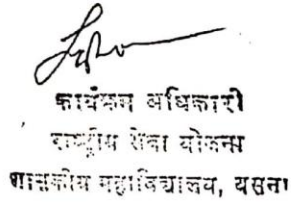 कार्यक्रम अधिकारी
राष्ट्रीय सेवा योजना
शासकीय महाविद्यालय, बसना